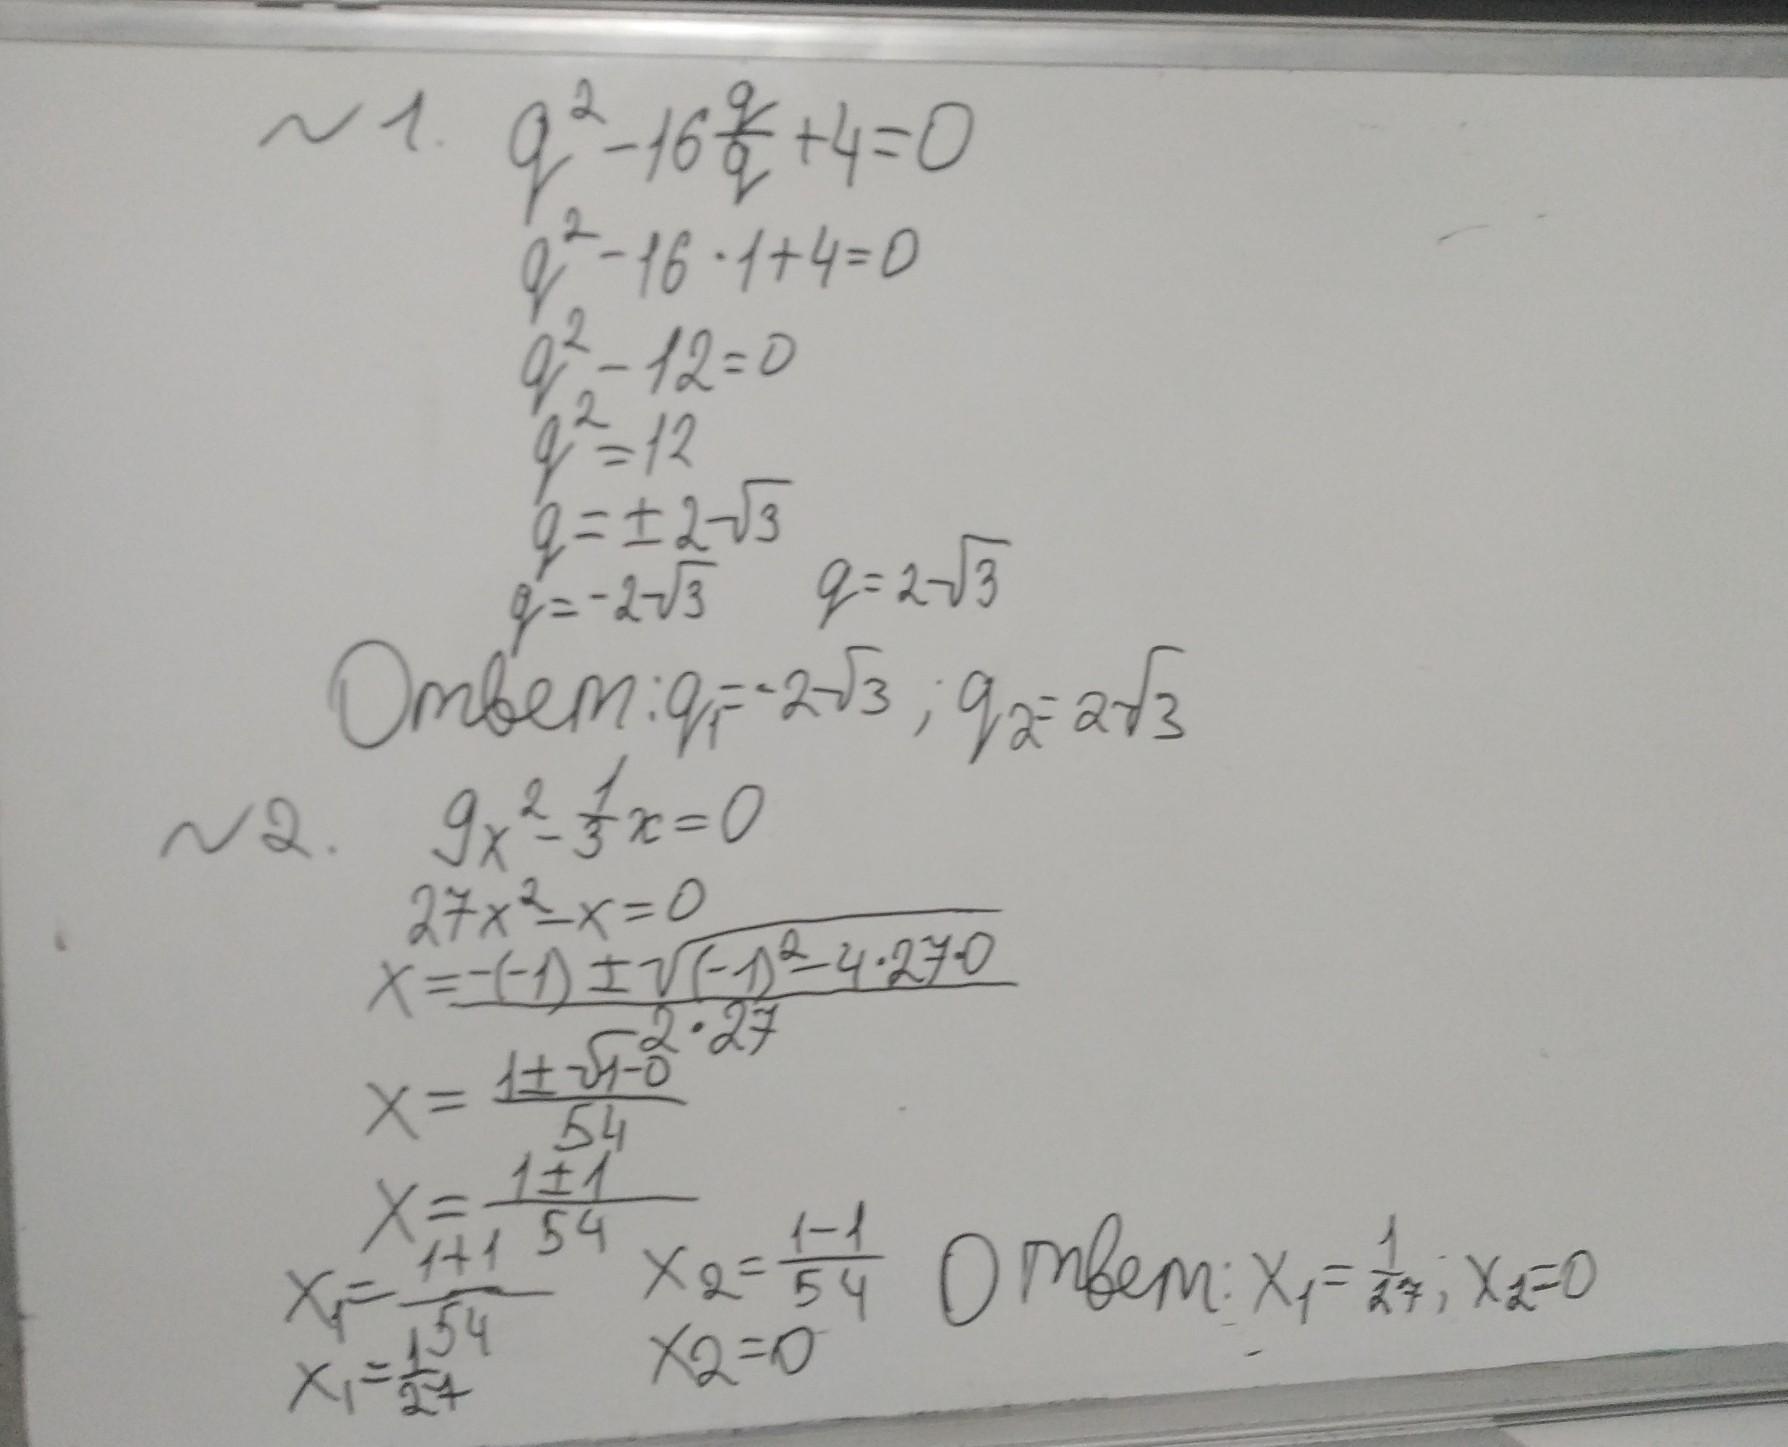 ~1. q² - 16 q/q + 4 = 0
q² - 16 · 1 + 4 = 0
q² - 12 = 0
q² = 12
q = ± 2√3
q = -2√3 q = 2√3
Ответ: q₁ = -2√3 ; q₂ = 2√3
~2. 9x² - 1/3 x = 0
27x² - x = 0
x = (-(-1) ± √((-1)² - 4·27·0)) / (2·27)
x = (1 ± √(1-0)) / 54
x = (1 ± 1) / 54
x₁ = (1+1) / 54 x₂ = (1-1) / 54 Ответ: x₁ = 1/27 ; x₂ = 0
x₁ = 1/27 x₂ = 0